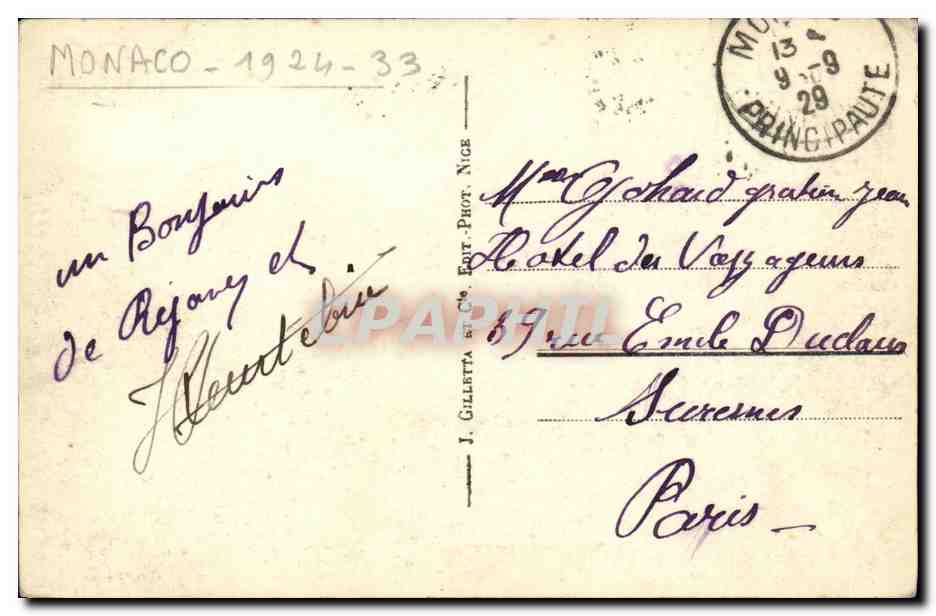 MONACO - 1924 - 33
MON
13
9 -9
29
PRINCIPAUTE
un Bonjours
de Rejany et
J. GILLETTA ET Cie. EDIT.-PHOT. NICE
Mme
Hotel des Voyageurs
39 rue Emile Duclaus
Suresnes
Paris
CPAPHIL